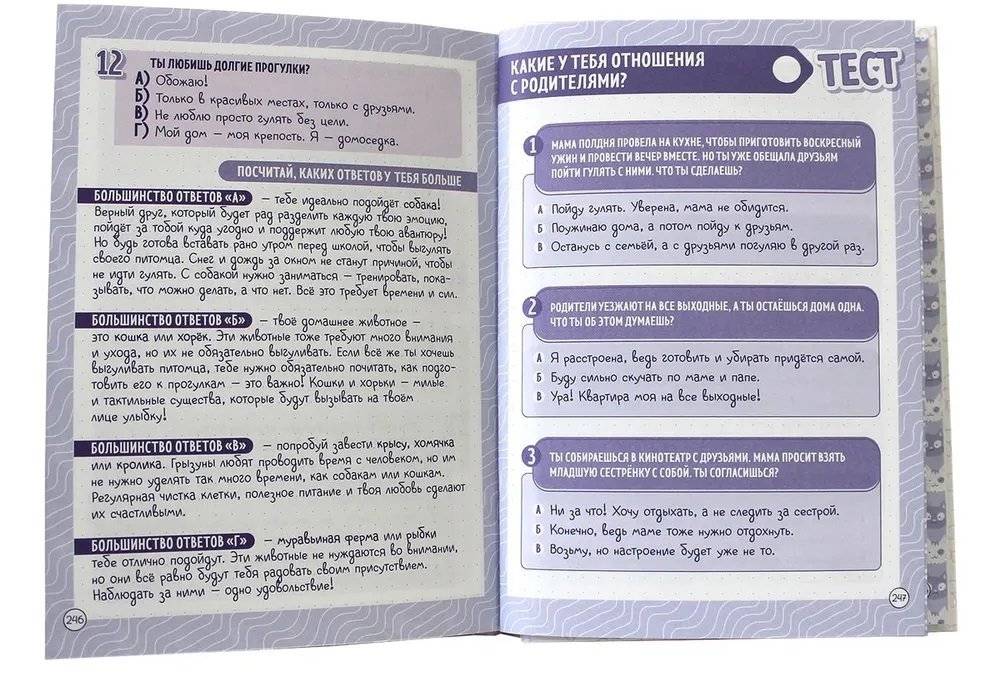 12
ТЫ ЛЮБИШЬ ДОЛГИЕ ПРОГУЛКИ?
А) Обожаю!
Б) Только в красивых местах, только с друзьями.
В) Не люблю просто гулять без цели.
Г) Мой дом – моя крепость. Я – домоседка.
ПОСЧИТАЙ, КАКИХ ОТВЕТОВ У ТЕБЯ БОЛЬШЕ
БОЛЬШИНСТВО ОТВЕТОВ «А» – тебе идеально подойдёт собака!
Верный друг, который будет рад разделить каждую твою эмоцию,
пойдёт за тобой куда угодно и поддержит любую твою авантюру!
Но будь готова вставать рано утром перед школой, чтобы выгулять
своего питомца. Снег и дождь за окном не станут причиной, чтобы
не идти гулять. С собакой нужно заниматься – тренировать, пока-
зывать, что можно делать, а что нет. Всё это требует времени и сил.
БОЛЬШИНСТВО ОТВЕТОВ «Б» – твоё домашнее животное –
это кошка или хорёк. Эти животные тоже требуют много внимания
и ухода, но их не обязательно выгуливать. Если всё же ты хочешь
выгуливать питомца, тебе нужно обязательно почитать, как подго-
товить его к прогулкам – это важно! Кошки и хорьки – милые
и тактильные существа, которые будут вызывать на твоём
лице улыбку!
БОЛЬШИНСТВО ОТВЕТОВ «В» – попробуй завести крысу, хомячка
или кролика. Грызуны любят проводить время с человеком, но им
не нужно уделять так много времени, как собакам или кошкам.
Регулярная чистка клетки, полезное питание и твоя любовь сделают
их счастливыми.
БОЛЬШИНСТВО ОТВЕТОВ «Г» – муравьиная ферма или рыбки
тебе отлично подойдут. Эти животные не нуждаются во внимании,
но они всё равно будут тебя радовать своим присутствием.
Наблюдать за ними – одно удовольствие!
246
КАКИЕ У ТЕБЯ ОТНОШЕНИЯ
С РОДИТЕЛЯМИ?
ТЕСТ
1
МАМА ПОЛДНЯ ПРОВЕЛА НА КУХНЕ, ЧТОБЫ ПРИГОТОВИТЬ ВОСКРЕСНЫЙ
УЖИН И ПРОВЕСТИ ВЕЧЕР ВМЕСТЕ. НО ТЫ УЖЕ ОБЕЩАЛА ДРУЗЬЯМ
ПОЙТИ ГУЛЯТЬ С НИМИ. ЧТО ТЫ СДЕЛАЕШЬ?
А Пойду гулять. Уверена, мама не обидится.
Б Поужинаю дома, а потом пойду к друзьям.
В Останусь с семьёй, а с друзьями погуляю в другой раз.
2
РОДИТЕЛИ УЕЗЖАЮТ НА ВСЕ ВЫХОДНЫЕ, А ТЫ ОСТАЁШЬСЯ ДОМА ОДНА.
ЧТО ТЫ ОБ ЭТОМ ДУМАЕШЬ?
А Я расстроена, ведь готовить и убирать придётся самой.
Б Буду сильно скучать по маме и папе.
В Ура! Квартира моя на все выходные!
3
ТЫ СОБИРАЕШЬСЯ В КИНОТЕАТР С ДРУЗЬЯМИ. МАМА ПРОСИТ ВЗЯТЬ
МЛАДШУЮ СЕСТРЁНКУ С СОБОЙ. ТЫ СОГЛАСИШЬСЯ?
А Ни за что! Хочу отдыхать, а не следить за сестрой.
Б Конечно, ведь маме тоже нужно отдохнуть.
В Возьму, но настроение будет уже не то.
247